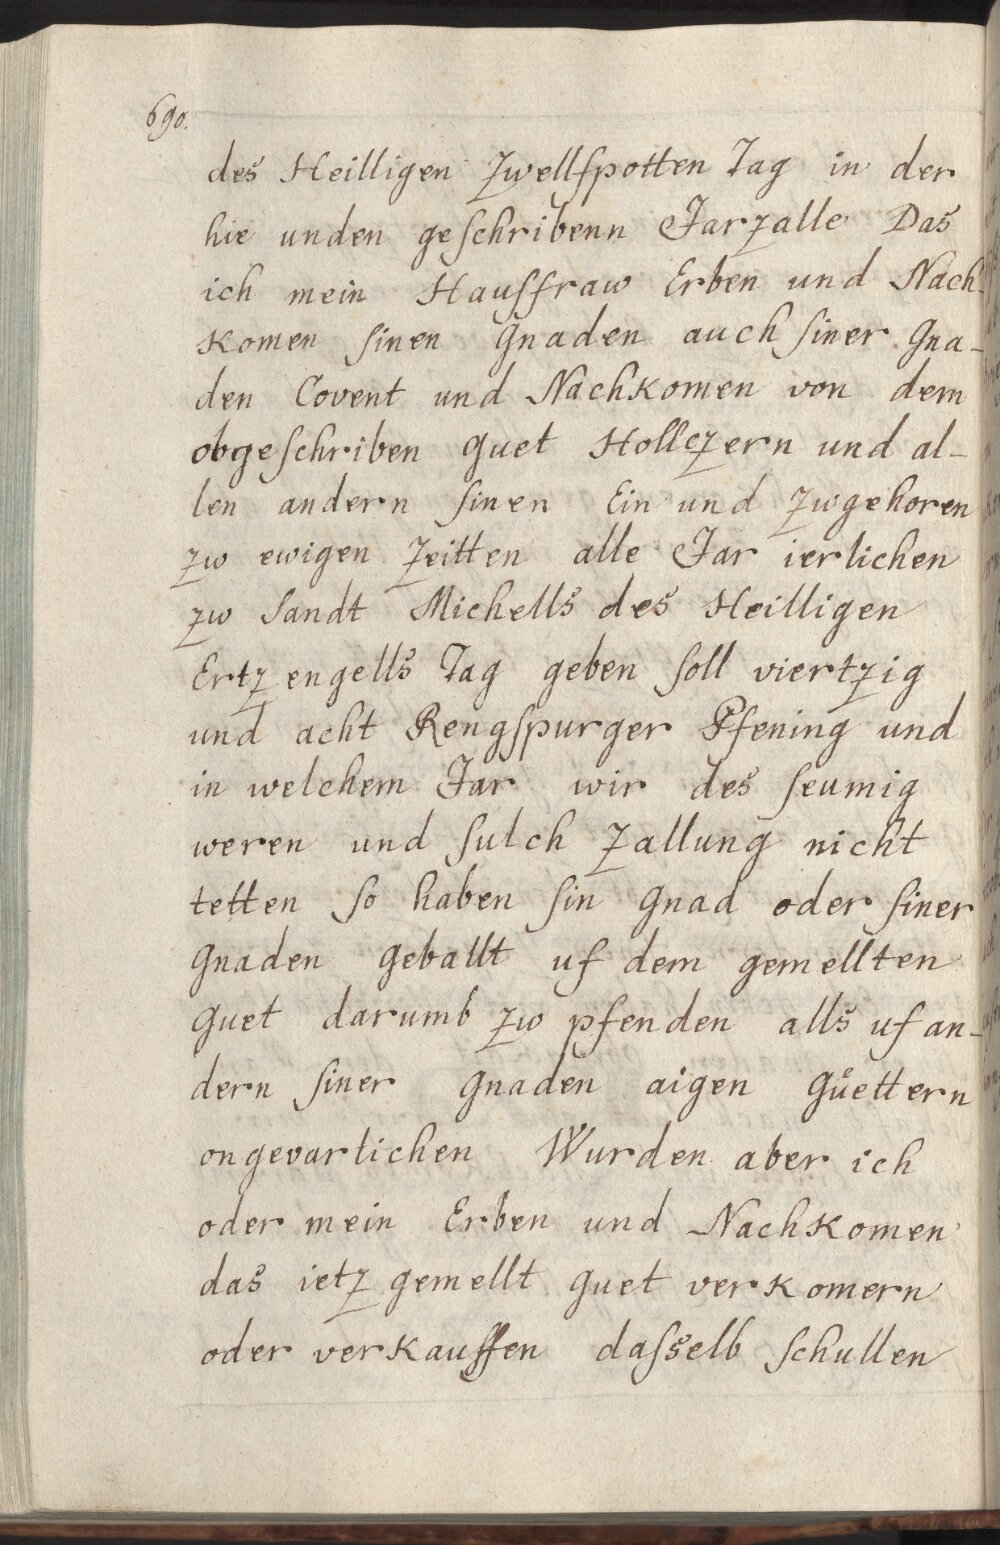 690.
des Heilligen zwellfpotten Tag in der
hie unden geschribenn Jarzalle Das
ich mein Hausfraw Erben und Nach-
komen sinen Gnaden auch siner Gna-
den Covent und Nachkomen von dem
obgeschriben Guet Hollczern und al-
len andern sinen Ein und zwgehoren
zw ewigen zeitten alle Jar ierlichen
zw Sandt Michells des Heilligen
Ertzengells Tag geben soll viertzig
und acht Rengspurger Pfening und
in welchem Jar wir des seumig
weren und sulch zallung nicht
tetten so haben sin Gnad oder siner
Gnaden geballt uf dem gemellten
Guet darumb zw pfenden alls uf an-
dern siner Gnaden aigen Gůettern
ongevarlichen Wurden aber ich
oder mein Erben und Nachkomen
das ietz gemellt Guet verkomern
oder verkauffen dasselb schullen